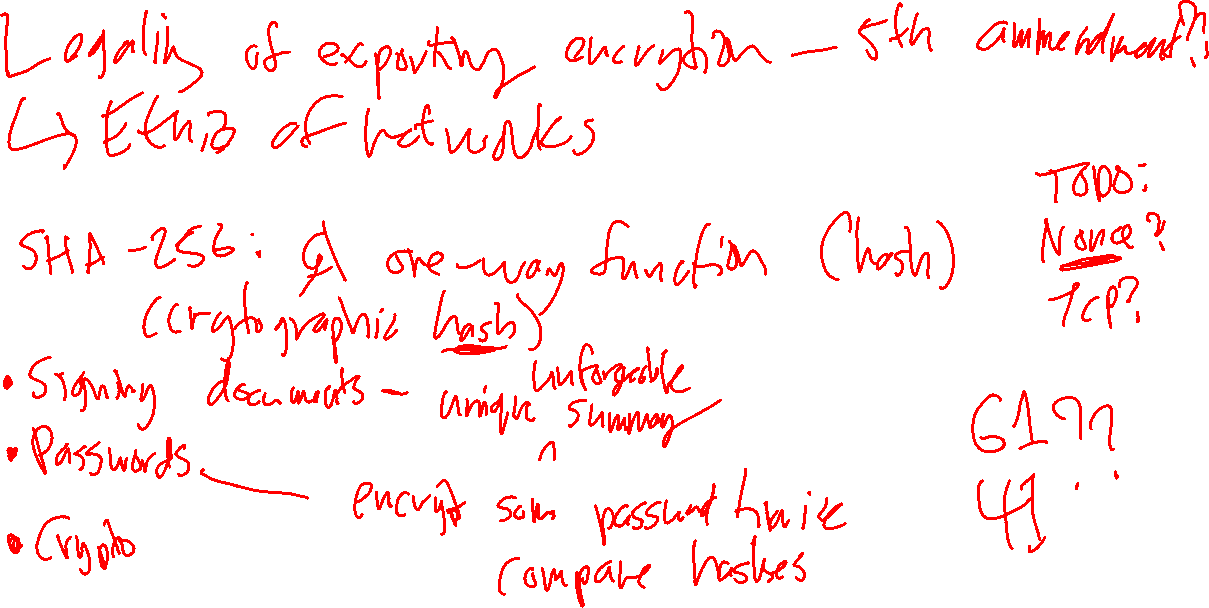 Legality of exporting encryption — 5th ammendment?!
↳ Ethics of networks
TODO:
Nonce?
TCP?
SHA-256: A one-way function (hash)
(crytographic hash)
• Signing documents - unique unforgeable summary
• Passwords — encrypt same password twice
compare hashes
• Crypto
61??
41